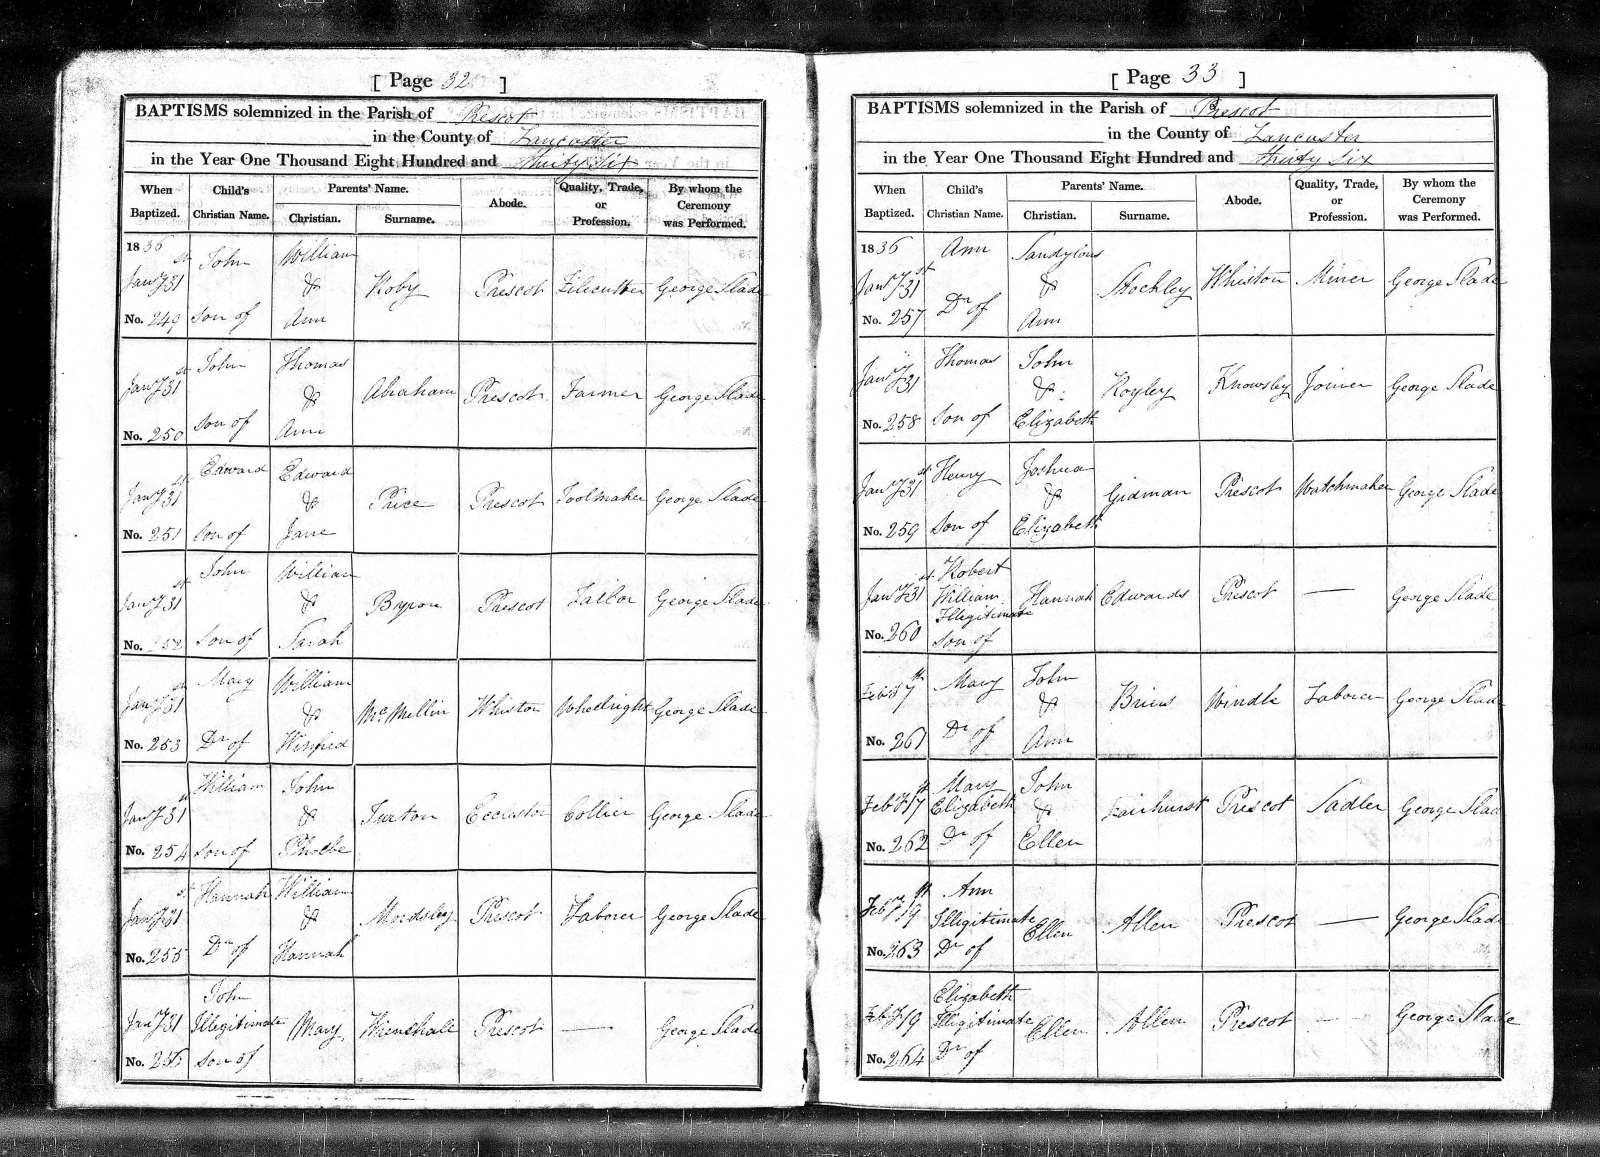 [ Page 32 ]
BAPTISMS solemnized in the Parish of Prescot
in the County of Lancaster
in the Year One Thousand Eight Hundred and thirty six
When Baptized. Child's Christian Name. Parents' Name. Christian. Surname. Abode. Quality, Trade, or Profession. By whom the Ceremony was Performed.
1836
Jany 31st John William
& Roby Prescot Filecutter George Slade
No. 249 son of Ann
Jany 31st John Thomas
& Abraham Prescot Farmer George Slade
No. 250 son of Ann
Jany 31st Edward Edward
& Price Prescot Toolmaker George Slade
No. 251 son of Jane
Jany 31st John William
& Byron Prescot Tailor George Slade
No. 252 son of Sarah
Jany 31st Mary William
& McMellin Whiston Wheelright George Slade
No. 253 Dr of Winfred
Jany 31st William John
& Turton Eccleston Collier George Slade
No. 254 son of Phoebe
Jany 31st Hannah William
& Mordsley Prescot Laborer George Slade
No. 255 Dr of Hannah
John
Jany 31 Illegitimate Mary Prescot — George Slade
No. 256 son of
[ Page 33 ]
BAPTISMS solemnized in the Parish of Prescot
in the County of Lancaster
in the Year One Thousand Eight Hundred and thirty six
When Baptized. Child's Christian Name. Parents' Name. Christian. Surname. Abode. Quality, Trade, or Profession. By whom the Ceremony was Performed.
1836 Ann
Jany 31st & Stockley Whiston Miner George Slade
No. 257 Dr of Ann
Jany 31 Thomas John
& Royley Knowsley Joiner George Slade
No. 258 son of Elizabeth
Jany 31st Henry Joshua
& Gidman Prescot Watchmaker George Slade
No. 259 Son of Elizabeth
Robert
Jany 31st William Hannah Edwards Prescot — George Slade
Illegitimate
No. 260 son of
Feby 7th Mary John
& Briers Windle Laborer George Slade
No. 261 Dr of Ann
Mary John
Feby 17st Elizabeth & Fairhurst Prescot Sadler George Slade
No. 262 Dr of Ellen
Ann
Feby 19 Illegitimate Ellen Allen Prescot — George Slade
No. 263 Dr of
Elizabeth
Feby 19 Illigitimate Ellen Allen Prescot — George Slade
No. 264 Dr of